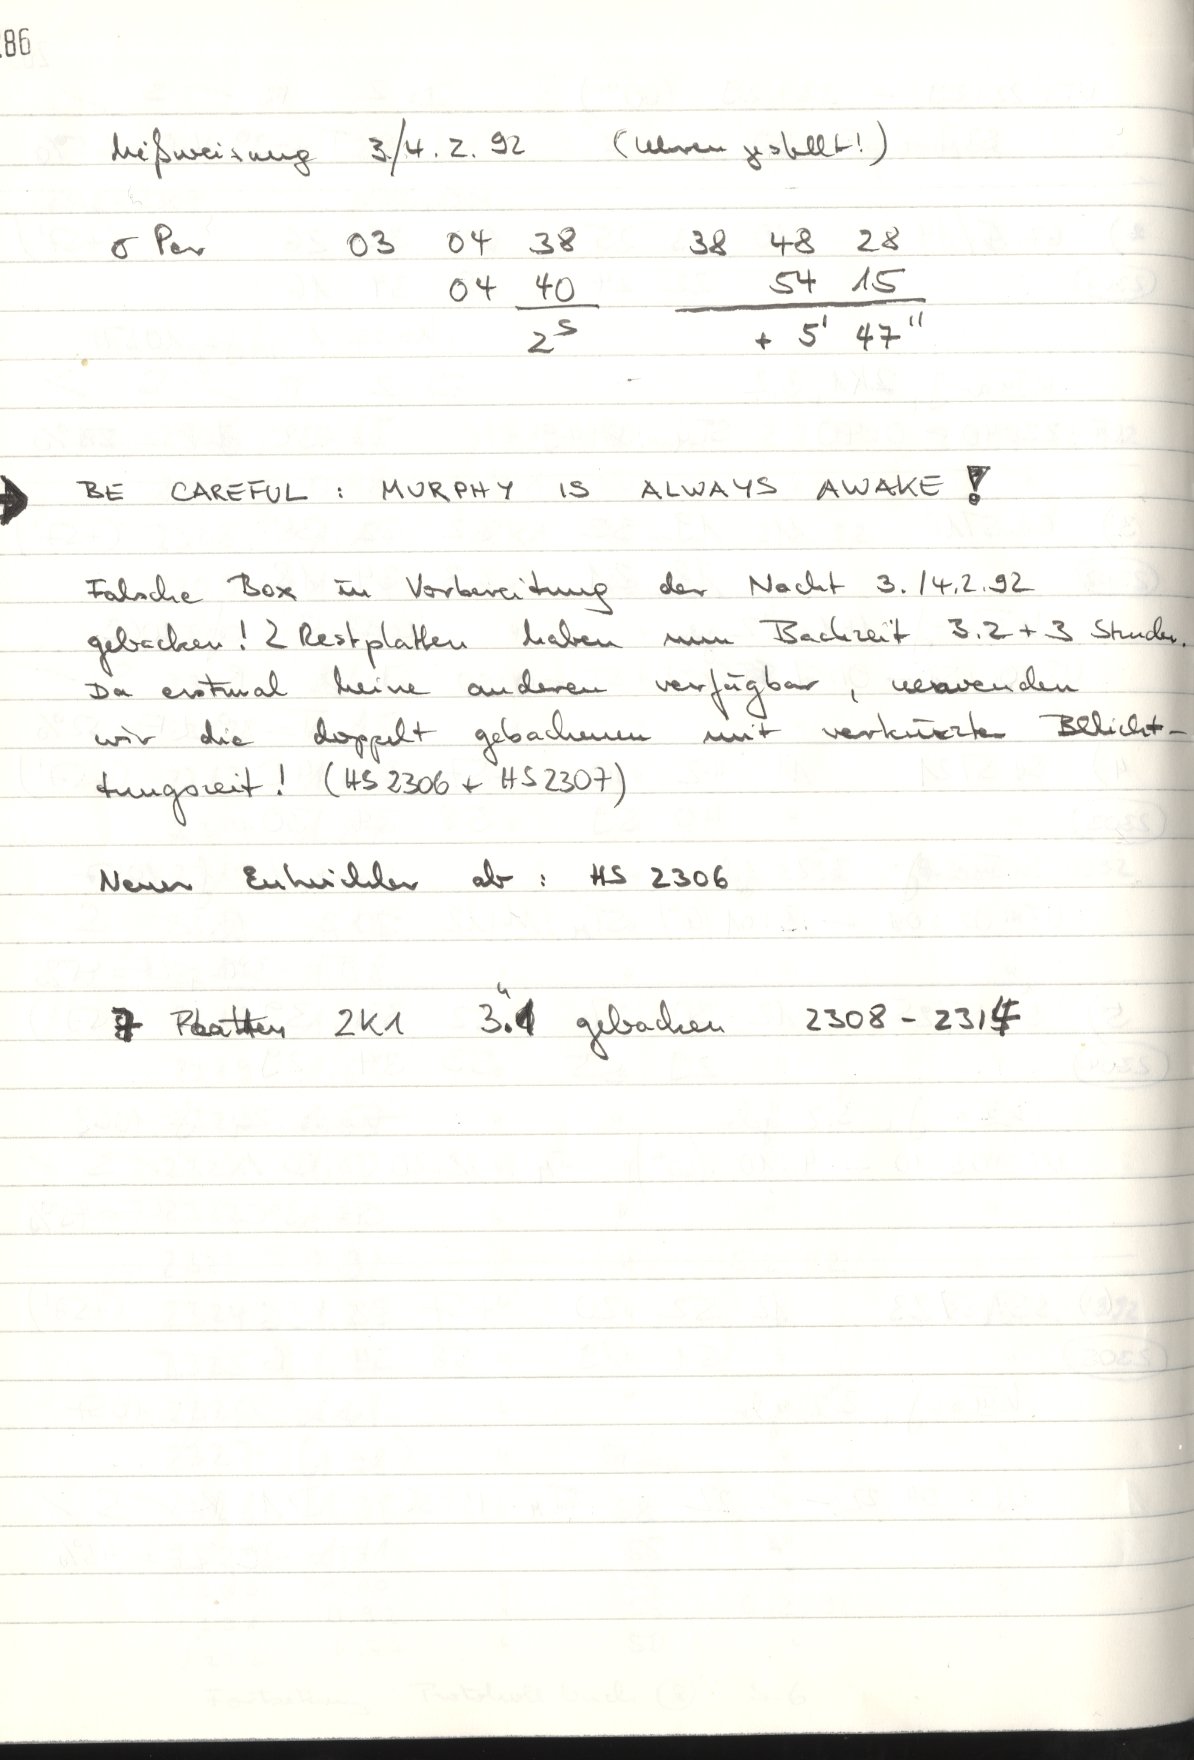 286
Mißweisung 3./4.2.92 (Uhren gestellt!)
σ Per 03 04 38 38 48 28
04 40 54 15
2ˢ + 5' 47"
BE CAREFUL : MURPHY IS ALWAYS AWAKE !
Falsche Box in Vorbereitung der Nacht 3./4.2.92
gebacken! 2 Restplatten haben nun Backzeit 3.2 + 3 Stunden.
Da erstmal keine anderen verfügbar, verwenden
wir die doppelt gebackenen mit verkürzter Belicht-
tungszeit! (HS 2306 + HS 2307)
Neuer Entwickler ab : HS 2306
7 Platten 2K1 gebacken 2308 - 2314